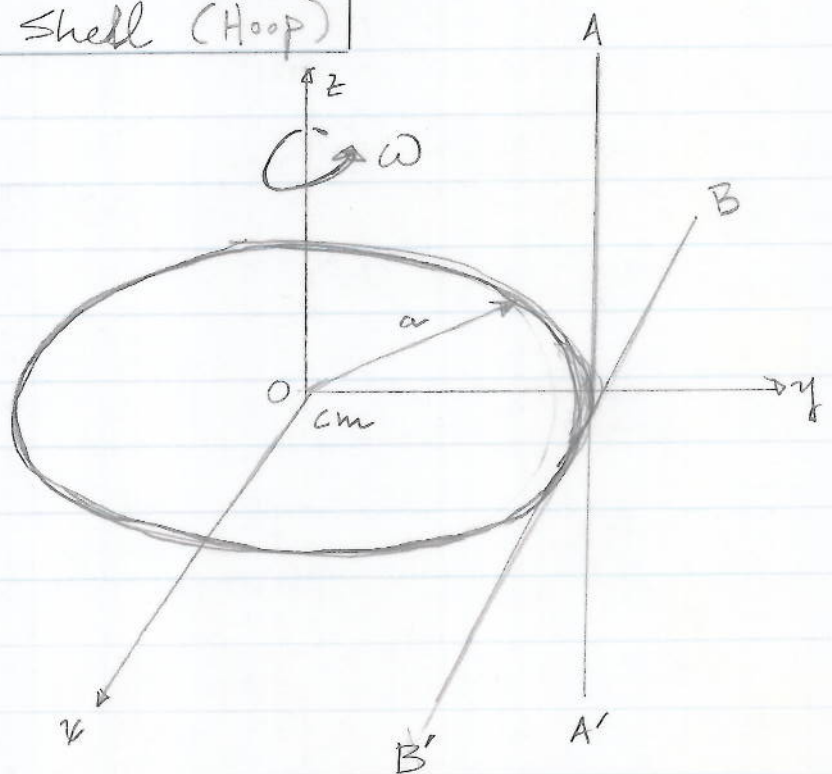 Shell (Hoop)
A
z
ω
B
a
O
y
cm
x
B'
A'